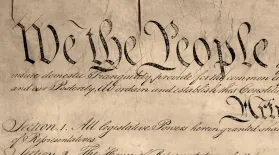 We the People,
insure domestic Tranquility, provide for the common
and our Posterity, do ordain and establish this Constitu
Arti
Section. 1. All legislative Powers herein granted shall
of Representatives.
Section. 2. The House of